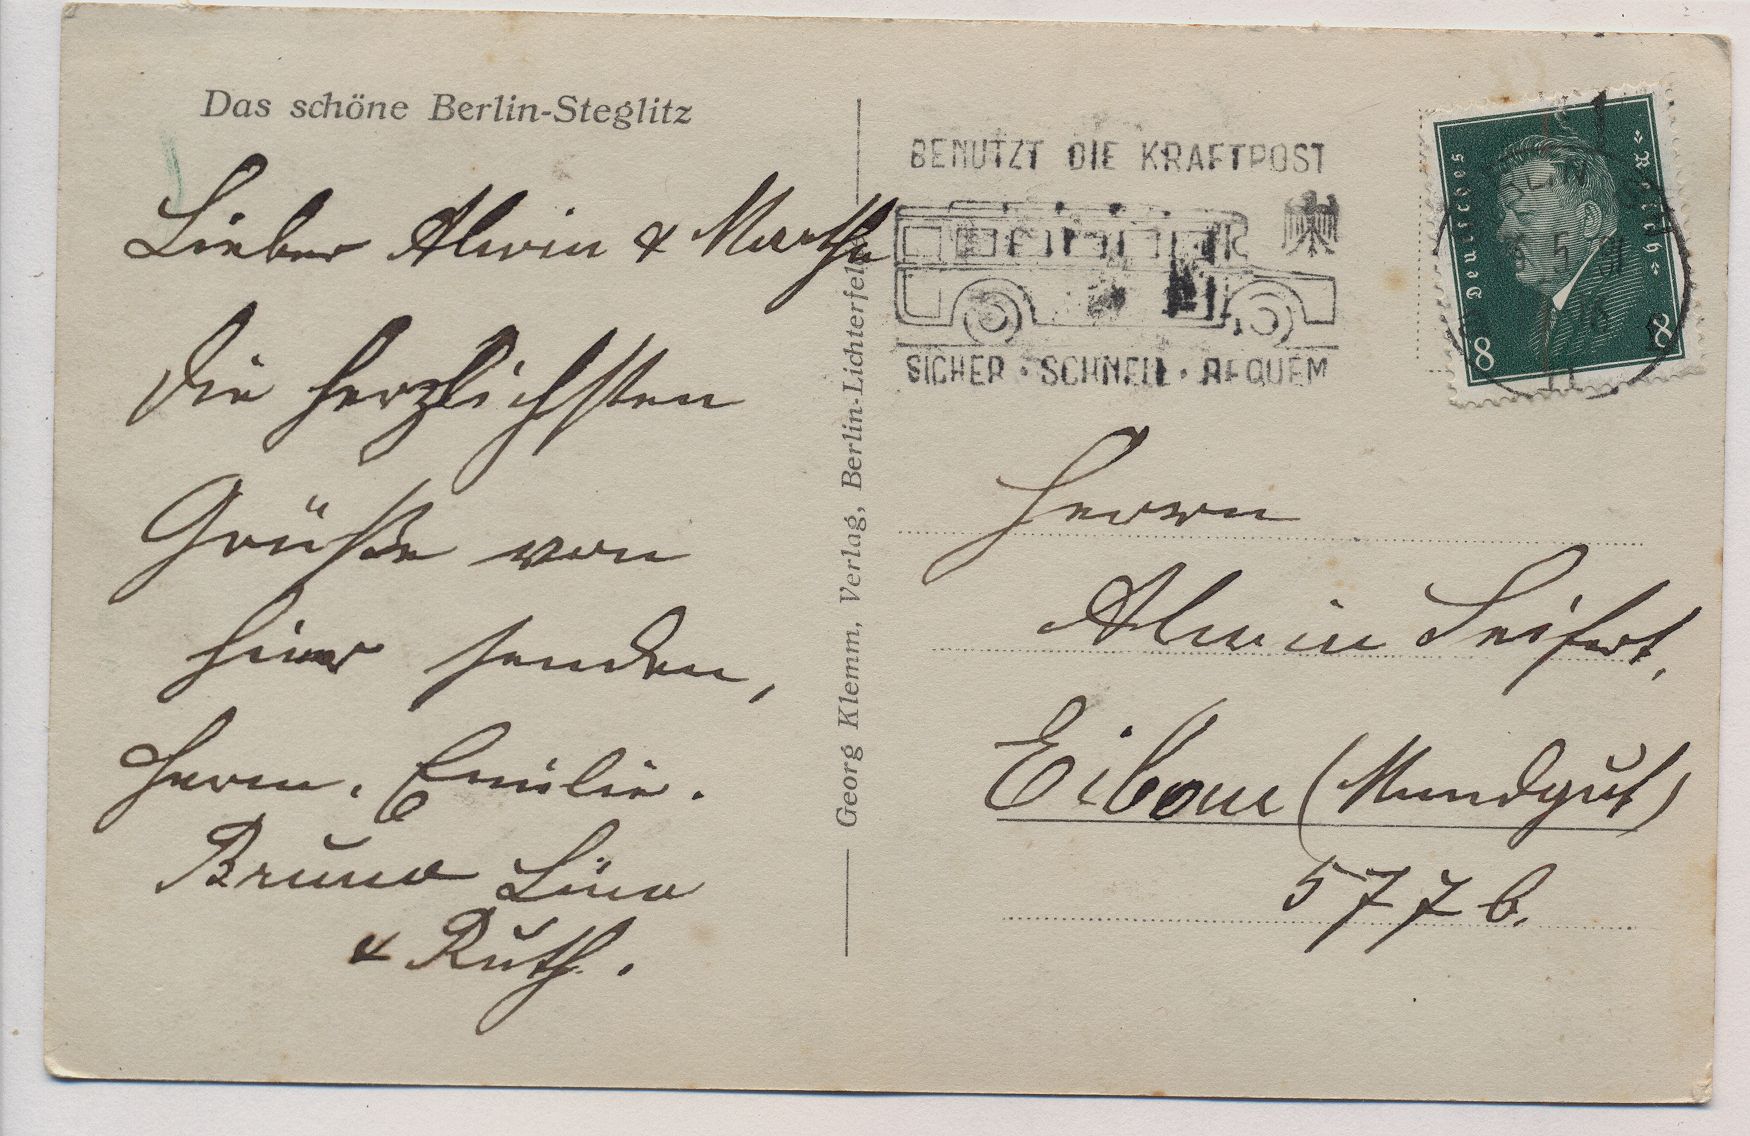 Das schöne Berlin-Steglitz
Lieber Alwin & Martha
Die herzlichsten
Grüße von
hier senden,
Herm. Emilie.
Bruno Lina
& Ruth.
Georg Klemm, Verlag, Berlin-Lichterfel
BENUTZT DIE KRAFTPOST
SICHER · SCHNELL · BEQUEM
Deutsches Reich
8 8
BERLIN
5 31
Herrn
Alwin Seifert,
Eibau (Mundgut)
577 b.